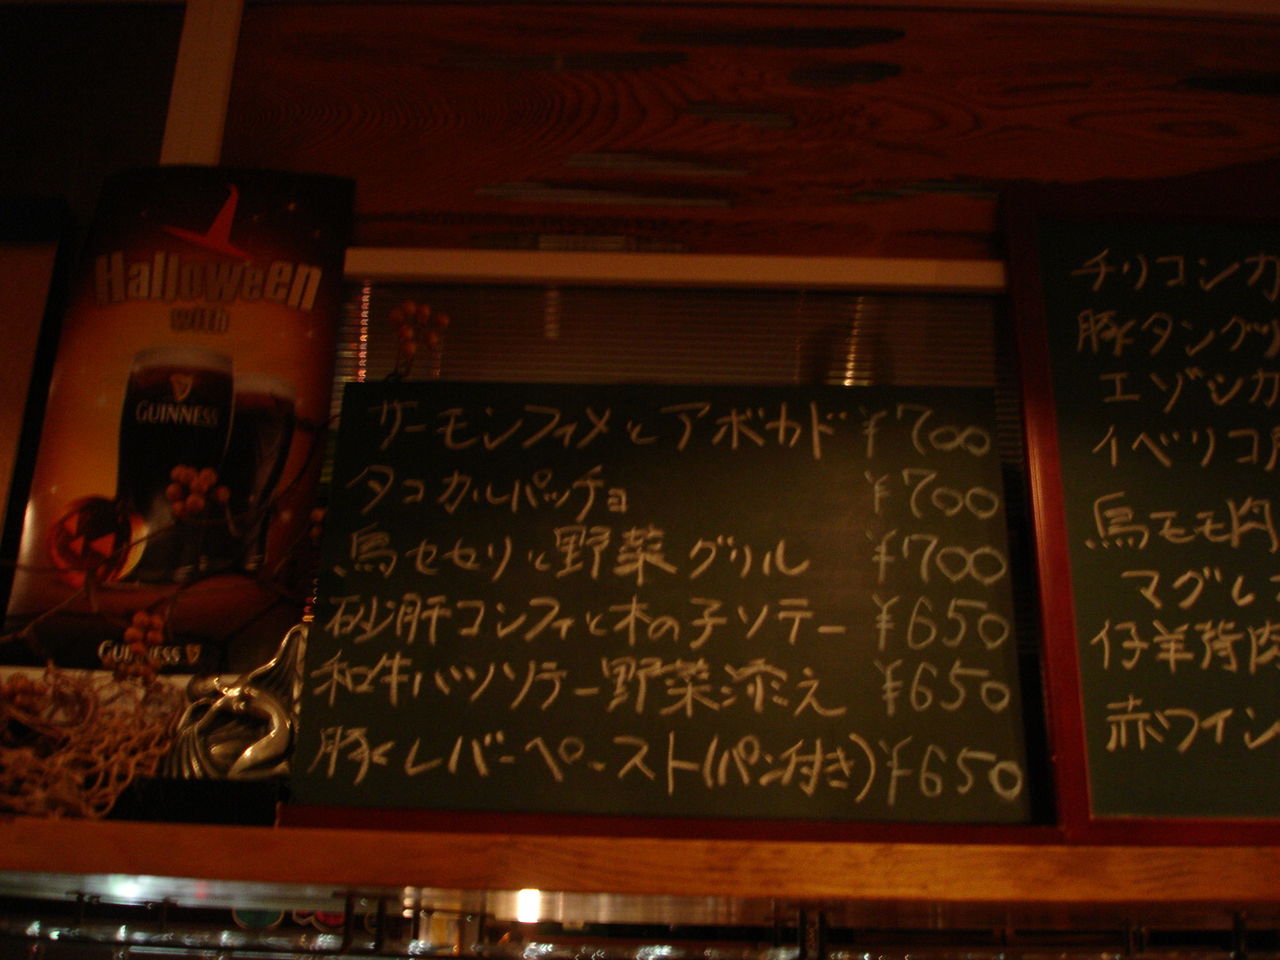 Halloween
with
GUINNESS
GUINNESS
サーモンフィメとアボカド ¥700
タコカルパッチョ ¥700
鳥セセリと野菜グリル ¥700
砂肝コンフィと木の子ソテー ¥650
和牛ハツソテー野菜添え ¥650
豚レバーペースト(パン付き) ¥650
チリコンカ
豚タング
エゾシカ
イベリコ
鳥モモ肉
マグレ
仔羊背肉
赤ワイン